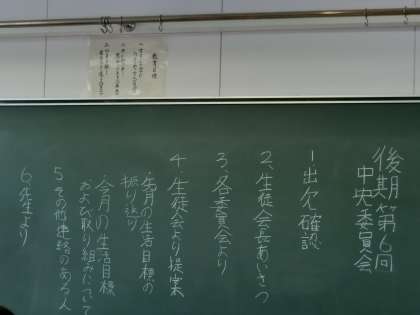 教育目標
後期第6回
中央委員会
1 出欠確認
2、生徒会長あいさつ
3、各委員会より
4、生徒会より提案
・先月の生活目標の
振り返り
・今月の生活目標
および取り組みについて
5 その他連絡のある人
6 先生より